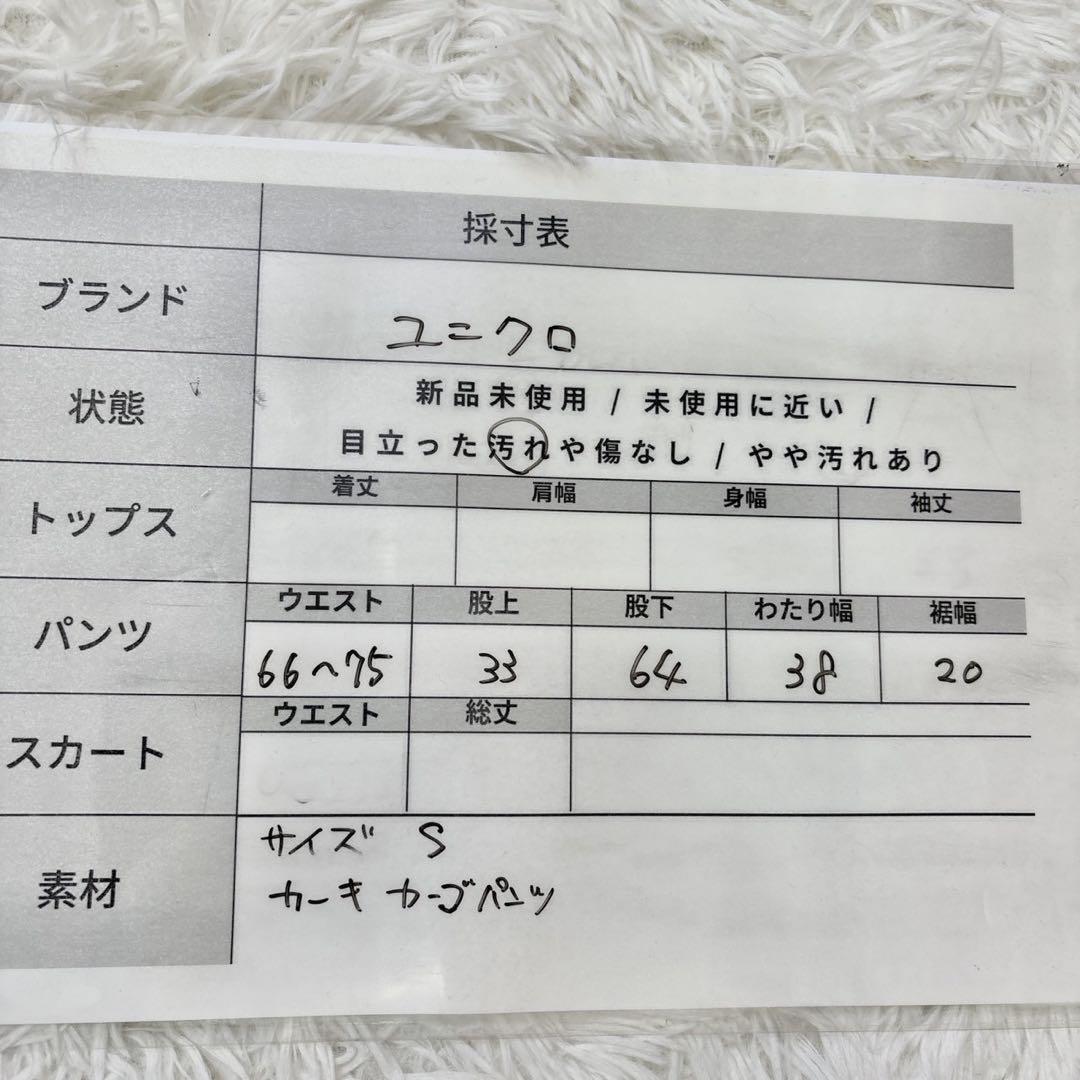 採寸表
ブランド
ユニクロ
状態
新品未使用 / 未使用に近い /
目立った汚れや傷なし / やや汚れあり
トップス
着丈 肩幅 身幅 袖丈
パンツ
ウエスト 股上 股下 わたり幅 裾幅
66〜75 33 64 38 20
スカート
ウエスト 総丈
素材
サイズ S
カーキ カーゴパンツ